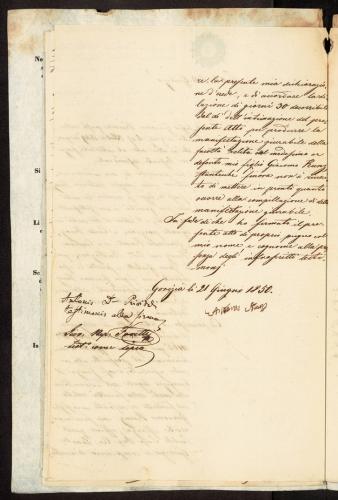 re la presente mia dichiarazio
ne d'rede, e di accordare la di
lazione di giorni 30 decorribili
dal dì dell'intimazione del pre
sente Atto per produrre la
manifestazione giurabile della
facoltà relitta dal medesimo
defonto mio figlio Giacomo
finora non è
to di mettere in pronto quanto
occorre alla compillazione di detta
manifestazione giurabile.
In fede di che ho firmato il pre
sente atto di proprio pugno col
mio nome e cognome alla pre
senza degli infrascritti testi
monj
Gorizia li 21 Giugno 1850.
Antonio
testimonio alla firma
test. come sopra